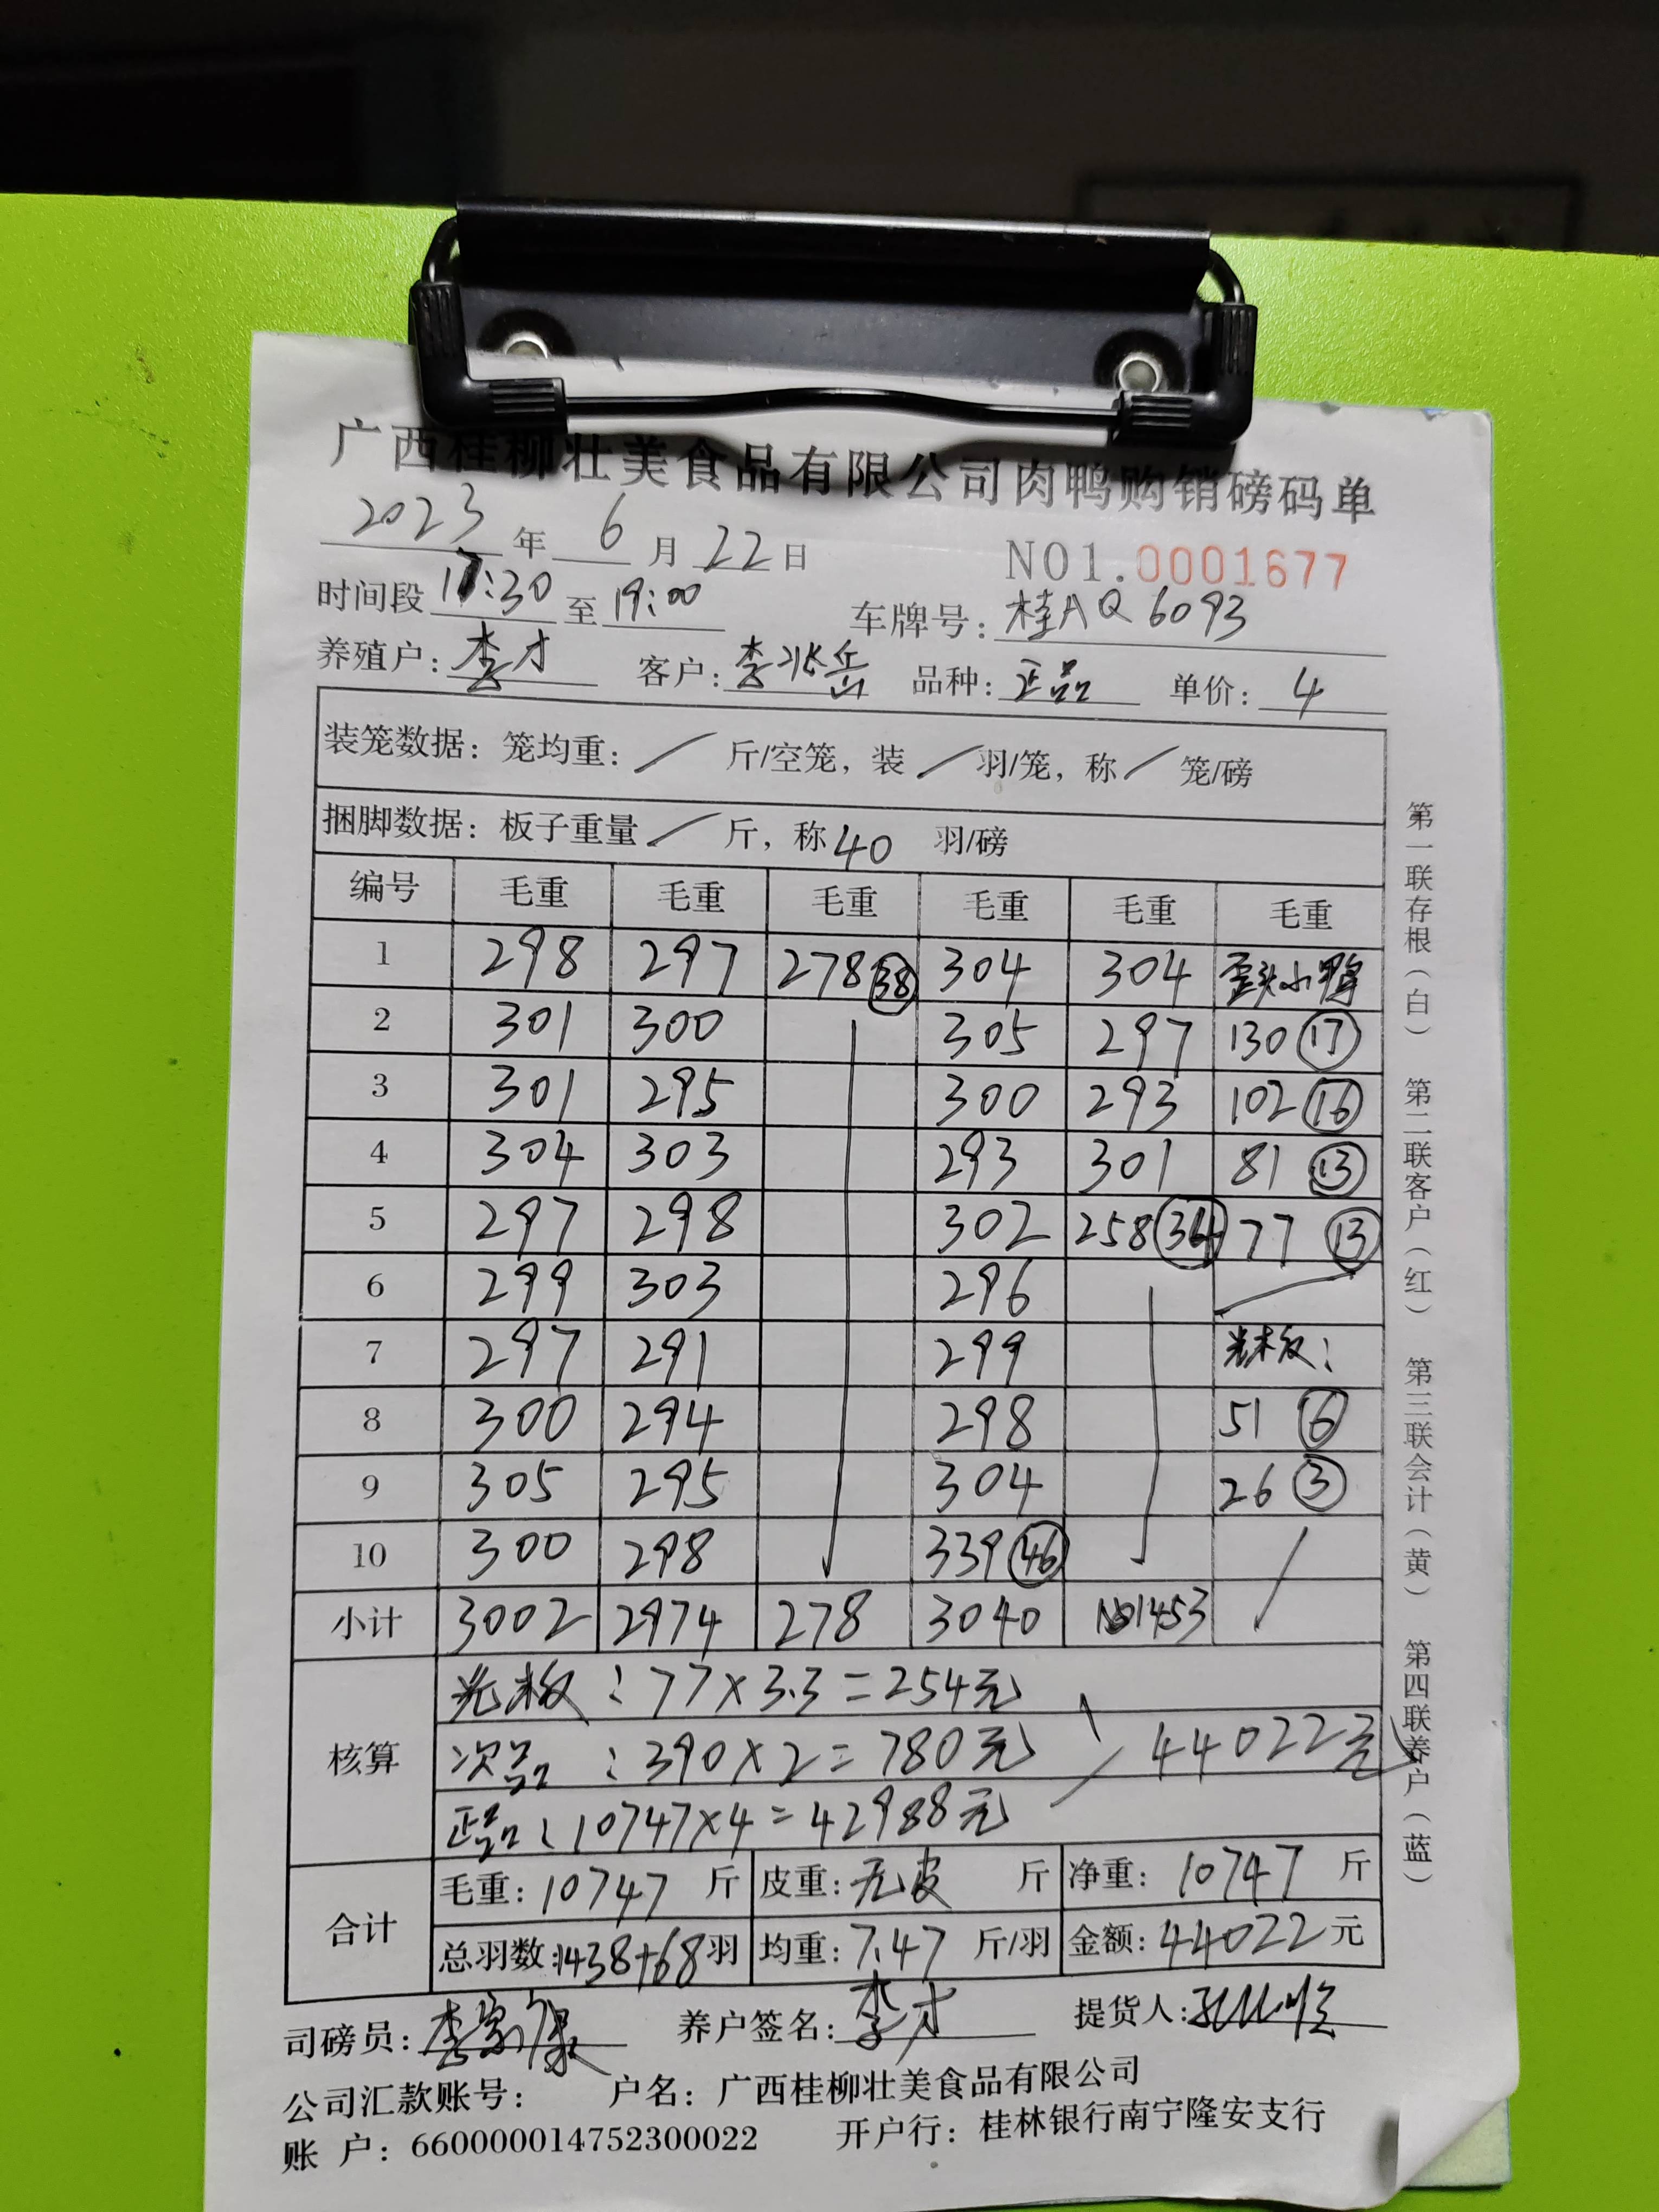 广西桂柳壮美食品有限公司肉鸭购销磅码单
2023 年 6 月 22 日 NO1.0001677
时间段 17:30 至 19:00 车牌号: 桂AQ6093
养殖户: 李才 客户: 李兆岳 品种: 正品 单价: 4
装笼数据: 笼均重: / 斤/空笼, 装 / 羽/笼, 称 / 笼/磅
捆脚数据: 板子重量 / 斤, 称 40 羽/磅
编号 毛重 毛重 毛重 毛重 毛重 毛重
1 298 297 278 38 304 304 歪头小鸭
2 301 300 305 297 130 17
3 301 295 300 293 102 16
4 304 303 293 301 81 13
5 297 298 302 258 34 77 13
6 299 303 296
7 297 291 299 光板:
8 300 294 298 51 6
9 305 295 304 26 3
10 300 298 339 46
小计 3002 2974 278 3040 1453
核算
光板: 77×3.3=254元
次品: 390×2=780元 44022元
正品: 10747×4=42988元
合计
毛重: 10747 斤 皮重: 无皮 斤 净重: 10747 斤
总羽数: 1438+68 羽 均重: 7.47 斤/羽 金额: 44022 元
司磅员: 养户签名: 李才 提货人:
公司汇款账号: 户名: 广西桂柳壮美食品有限公司
账 户: 660000014752300022 开户行: 桂林银行南宁隆安支行
第一联存根(白) 第二联客户(红) 第三联会计(黄) 第四联养户(蓝)